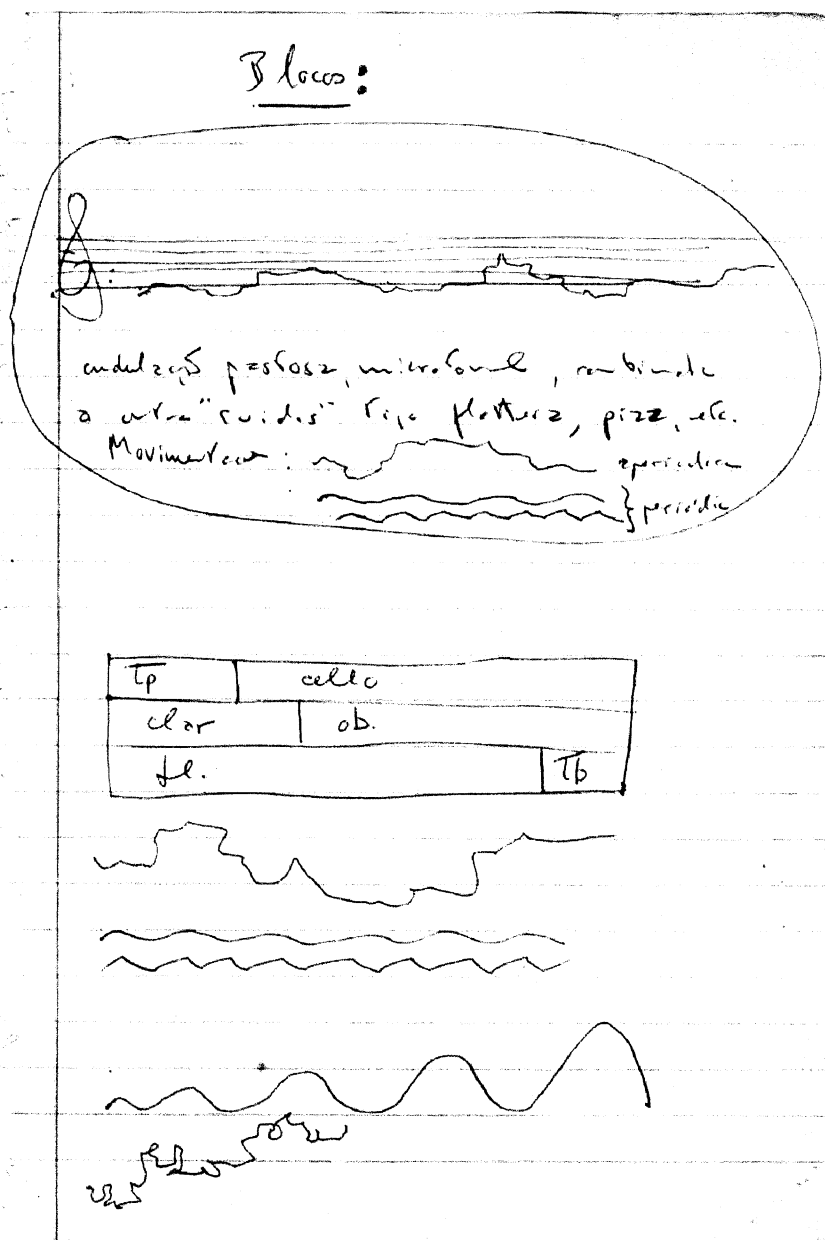 Blocos:
ondulação pastosa, microtonal, combinada
a outros "ruídos" tipo flatterz, pizz, etc.
Movimentos: aperiódico
periódico
Tp cello
clar ob.
fl. Tb